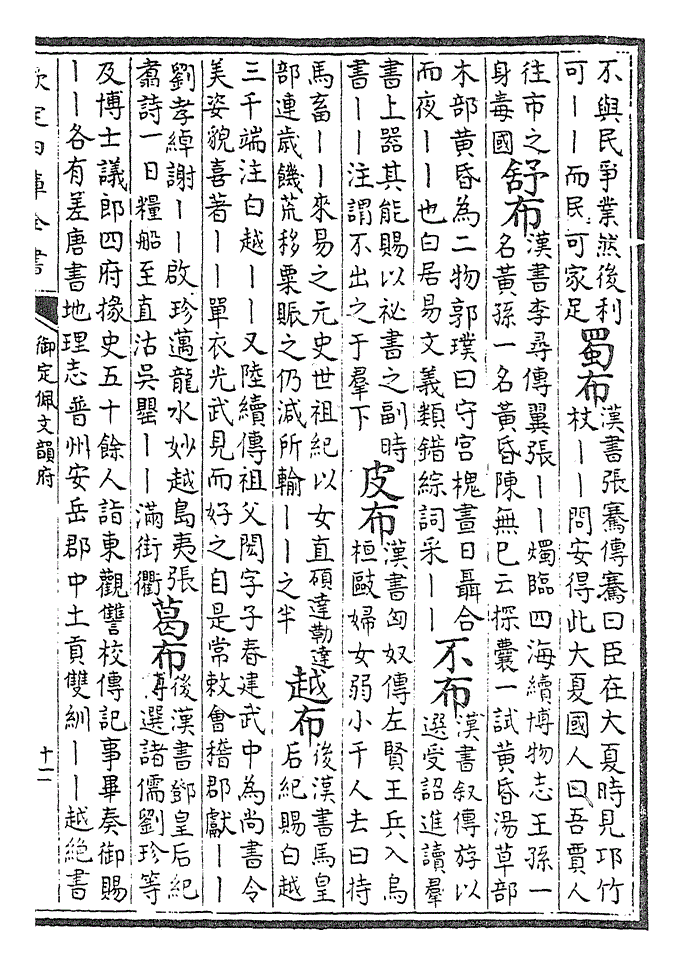 不與民爭業然後利
可——而民可家足
蜀布
漢書張騫傳騫曰臣在大夏時見邛竹
杖——問安得此大夏國人曰吾賈人
往市之
身毒國
舒布
漢書李尋傳翼張——燭臨四海續博物志王孫一
名黃孫一名黃昏陳無已云探囊一試黃昏湯草部
木部黃昏為二物郭璞曰守宮槐晝日聶合
而夜——也白居易文義類錯綜詞采——
不布
漢書叙傳斿以
選受詔進讀羣
書上器其能賜以祕書之副時
書——注謂不出之于羣下
皮布
漢書匈奴傳左賢王兵入烏
桓敺婦女弱小千人去曰持
馬畜——來易之元史世祖紀以女直碩達勒達
部連歲饑荒移粟賑之仍減所輸——之半
越布
後漢書馬皇
后紀賜白越
三千端注白越——又陸續傳祖父閎字子春建武中為尚書令
美姿貌喜著——單衣光武見而好之自是常敕會稽郡獻——
劉孝綽謝——啟珍邁龍水妙越島夷張
翥詩一日糧船至直沽吳罌——滿街衢
葛布
後漢書鄧皇后紀
博選諸儒劉珍等
及博士議郎四府掾史五十餘人詣東觀讐校傳記事畢奏御賜
——各有差唐書地理志普州安岳郡中土貢雙紃——越絶書
欽定四庫全書
御定佩文韻府
十二